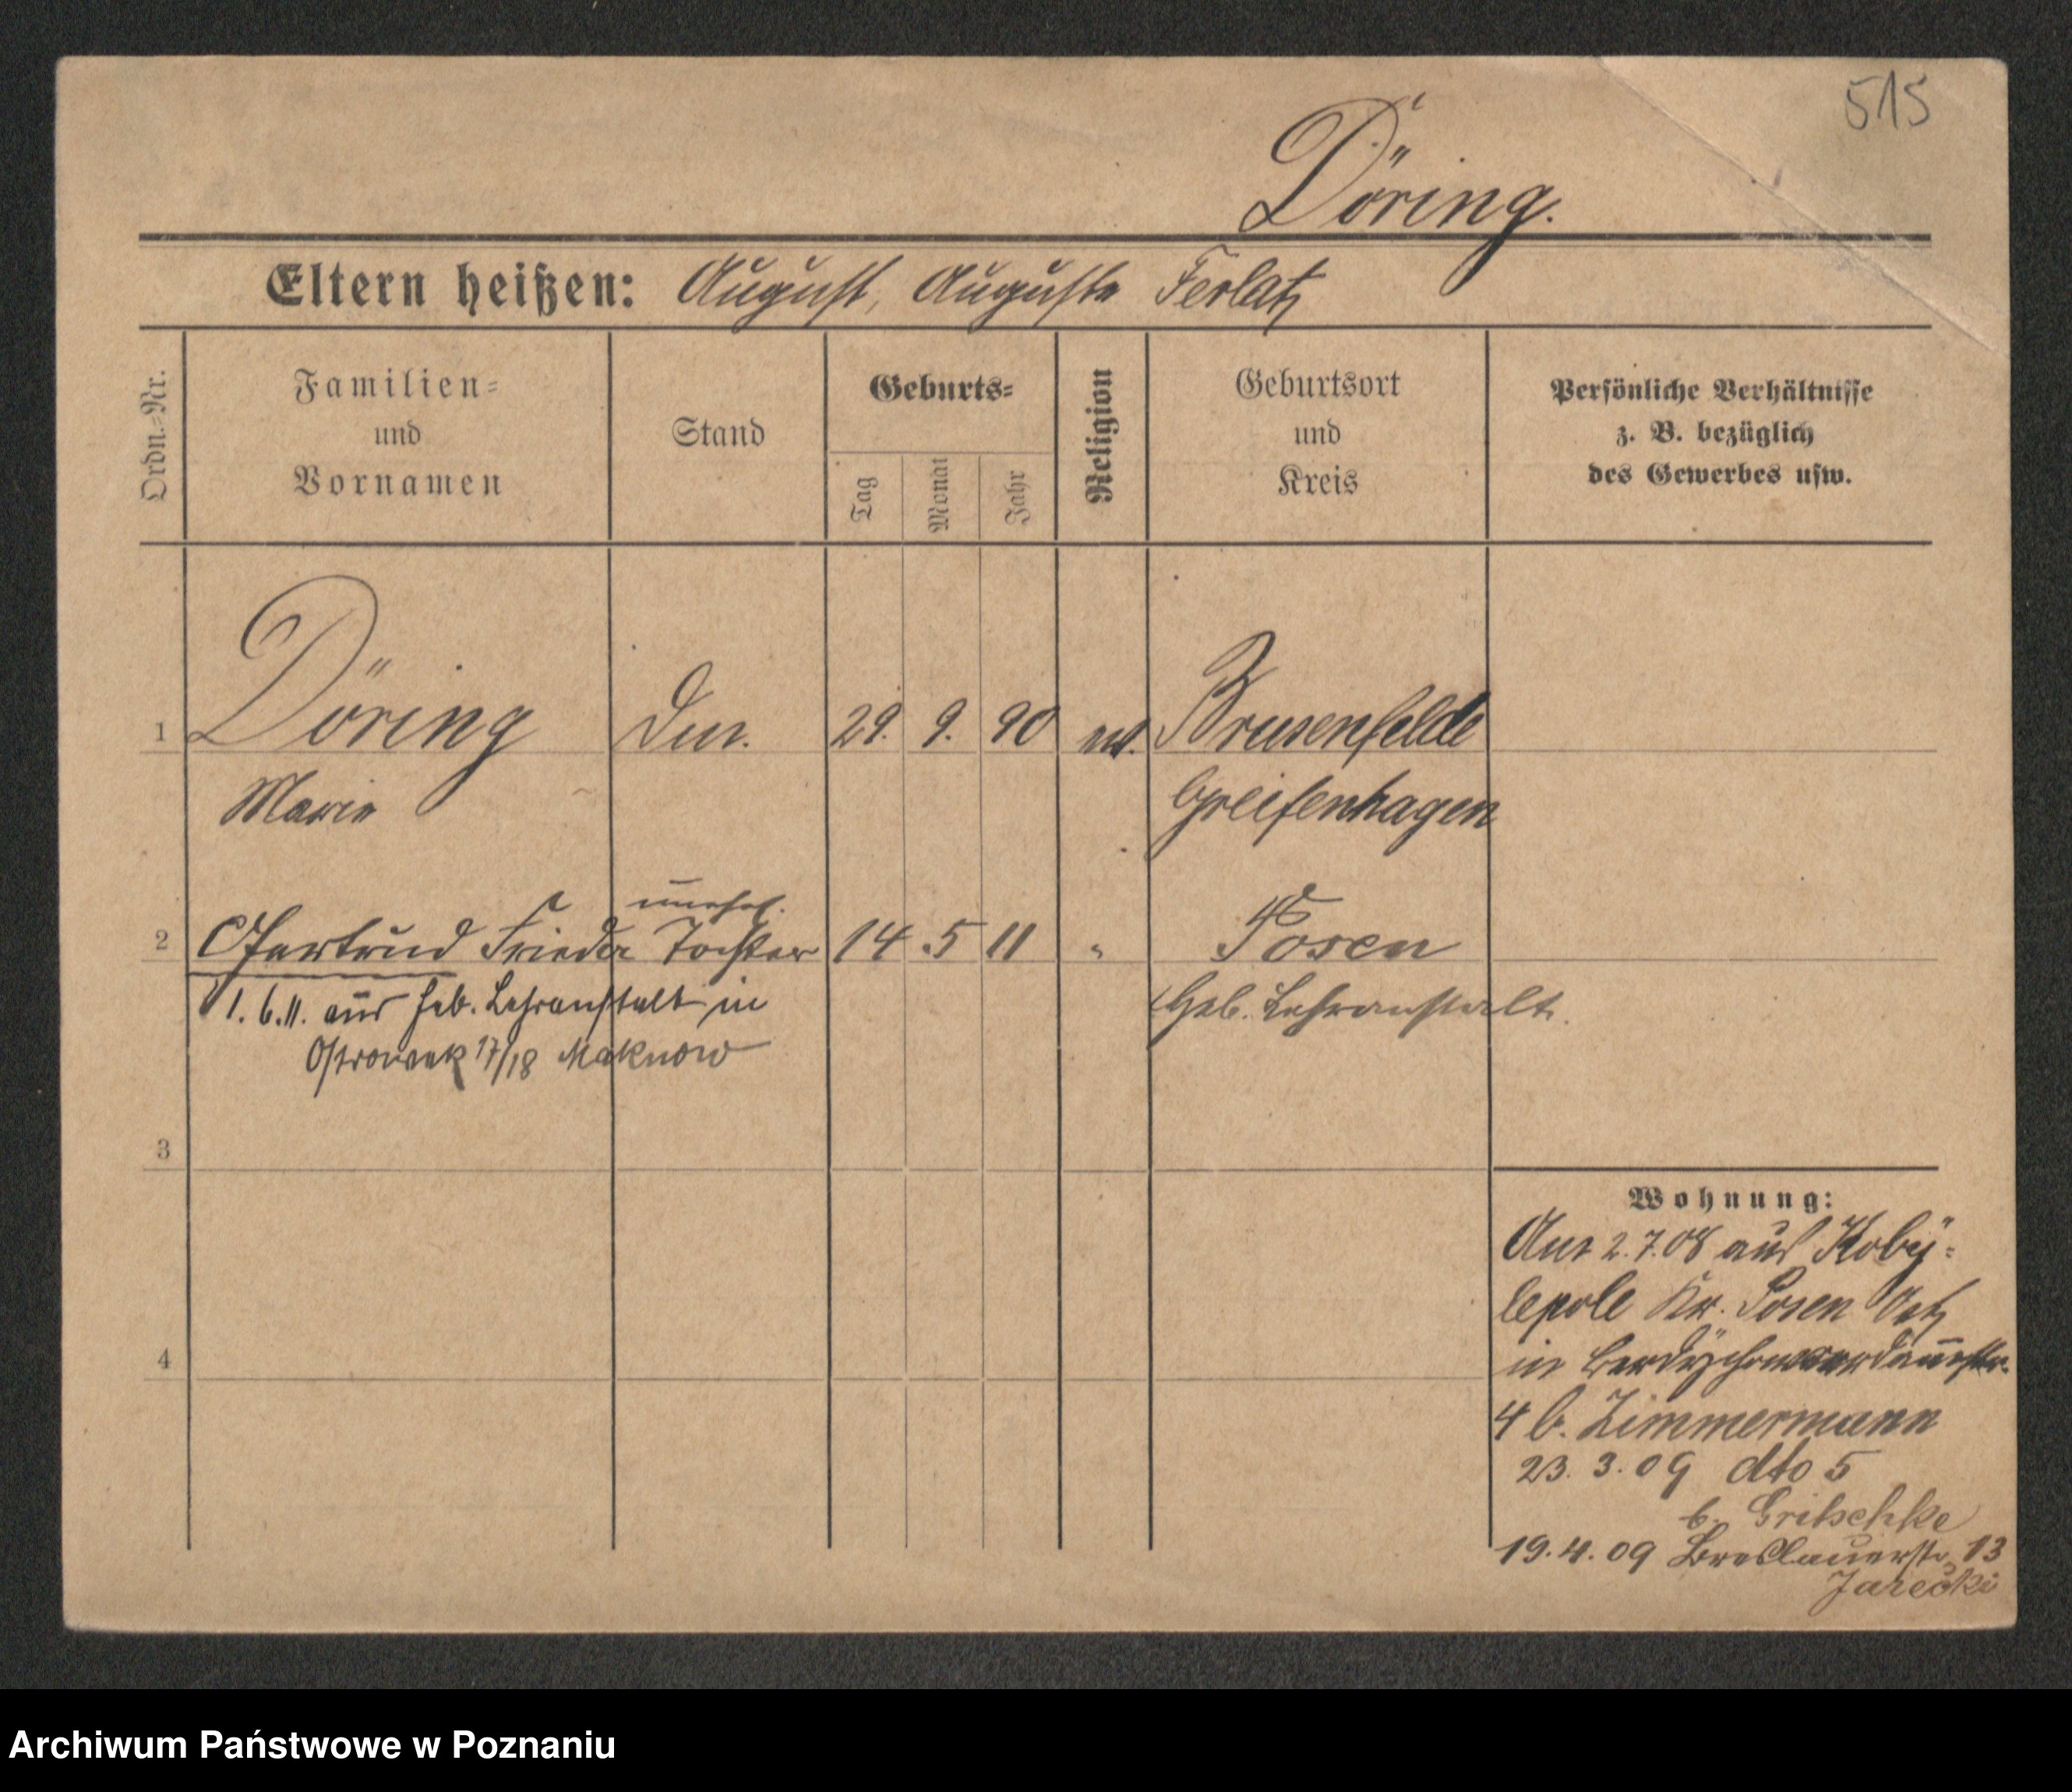 515
Döring.
Eltern heißen: August, Auguste Ferlatz
Ordn.=Nr.
Familien=
und
Vornamen
Stand
Geburts=
Tag
Monat
Jahr
Religion
Geburtsort
und
Kreis
Persönliche Verhältnisse
z. B. bezüglich
des Gewerbes usw.
1 Döring 29. 9. 90 ev. Brusenfelde
Marie Greifenhagen
unehel.
2 Gertrud Frieda Tochter 14 .5 11 " Posen
1. 6. 11. aus Heb. Lehranstalt in Heb. Lehranstalt.
Ostrowek 17/18 Maknow
3
4
Wohnung:
2.7.08 aus Koby=
lepole Kr. Posen
in Berdychowoerdammstr.
4 b. Zimmermann
23. 3. 09 dto 5
b. Gritschke
19. 4. 09 Breslauerstr. 13
Jarecki
Archiwum Państwowe w Poznaniu